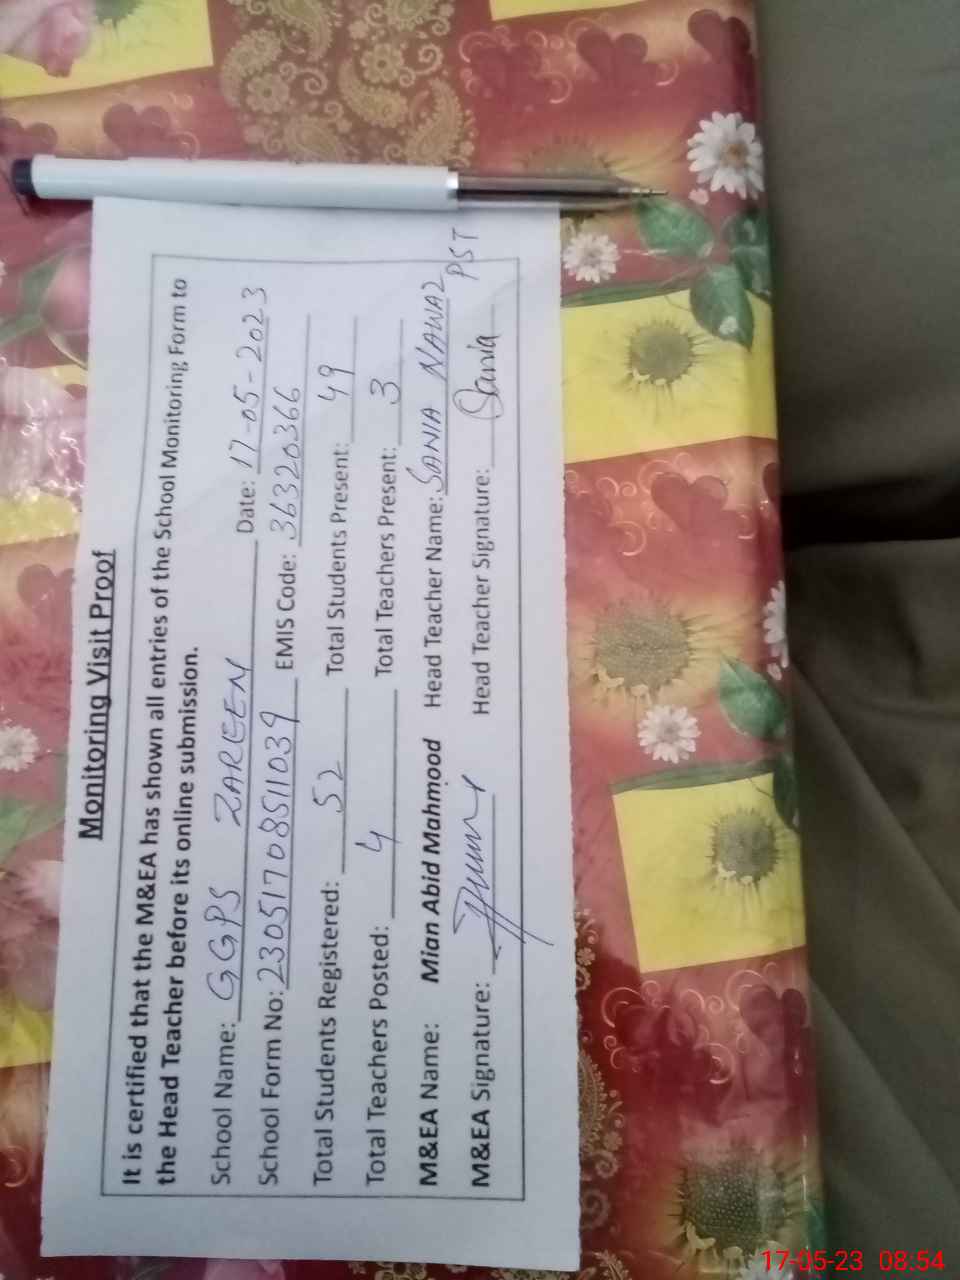 Monitoring Visit Proof
It is certified that the M&EA has shown all entries of the School Monitoring Form to
the Head Teacher before its online submission.
School Name: GGPS ZAREEN Date: 17-05-2023
School Form No: 23051708511039 EMIS Code: 36320366
Total Students Registered: 52 Total Students Present: 49
Total Teachers Posted: 4 Total Teachers Present: 3
M&EA Name: Mian Abid Mahmood Head Teacher Name: SANIA NAWAZ PST
M&EA Signature: Head Teacher Signature: Sania
17-05-23 08:54